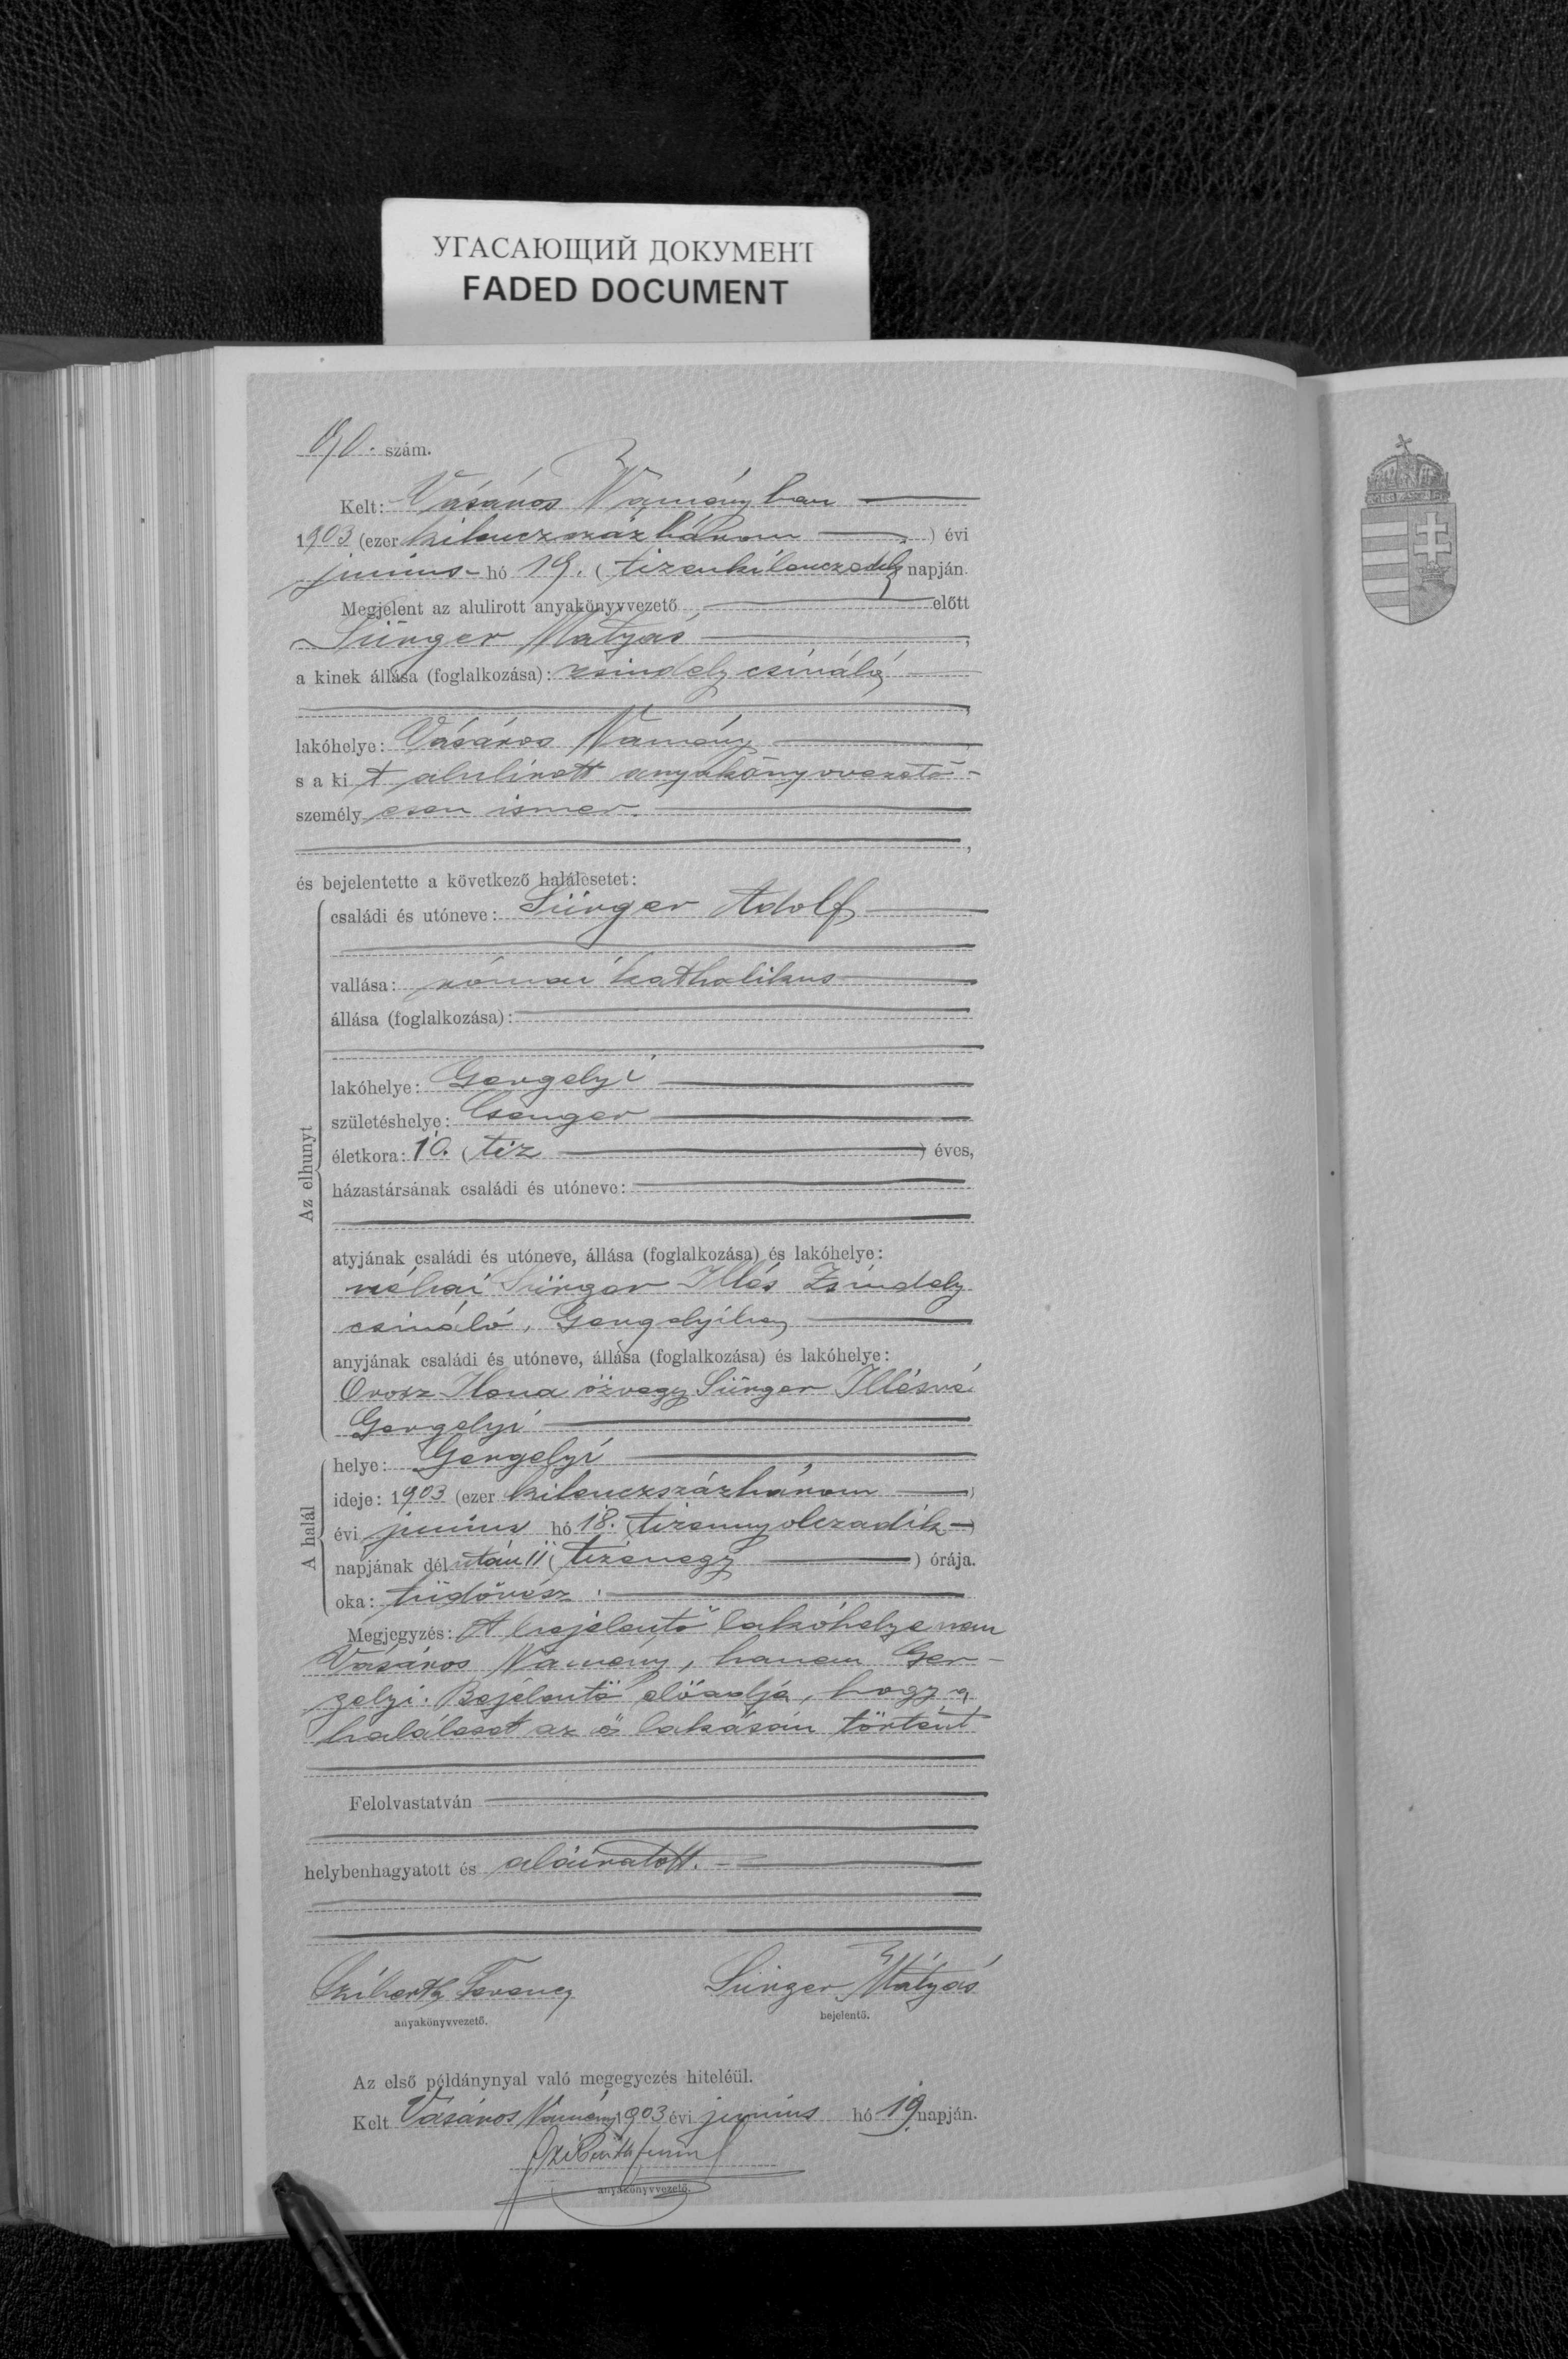 УГАСАЮЩИЙ ДОКУМЕНТ
FADED DOCUMENT
90. szám.
Kelt: Vásáros Naményban
1903 (ezer kilenczszázhárom) évi
junius hó 19. (tizenkilenczedik napján.
Megjelent az alulirott anyakönyvvezető előtt
Sünger Mátyás,
a kinek állása (foglalkozása): zsindely csináló
,
lakóhelye: Vásáros Namény
s a kit alulirott anyakönyvvezető
személyesen ismer.
,
és bejelentette a következő halálesetet:
Az elhunyt
családi és utóneve: Sünger Adolf
vallása: római katholikus
állása (foglalkozása):
lakóhelye: Gergelyi
születéshelye: Csenger
életkora: 10. (tiz) éves,
házastársának családi és utóneve:
atyjának családi és utóneve, állása (foglalkozása) és lakóhelye:
néhai Sünger Illés Zsindely
csináló, Gergelyi
anyjának családi és utóneve, állása (foglalkozása) és lakóhelye:
Orosz Ilona özvegy Sünger Illésné
Gergelyi
A halál
helye: Gergelyi
ideje: 1903 (ezer kilenczszázhárom)
évi junius hó 18. (tizennyolczadik)
napjának délután 11 (tizenegy) órája.
oka: tüdővész
Megjegyzés: A bejelentő lakóhelye nem
Vásáros Namény, hanem Ger-
gelyi. Bejelentő előadja, hogy a
haláleset az ő lakásán történt
Felolvastatván
helybenhagyatott és aláiratott.
Ferencz Sünger Mátyás
anyakönyvvezető. bejelentő.
Az első példánynyal való megegyezés hiteléül.
Kelt Vásáros Namény 1903 évi junius hó 19 napján.
anyakönyvvezető.